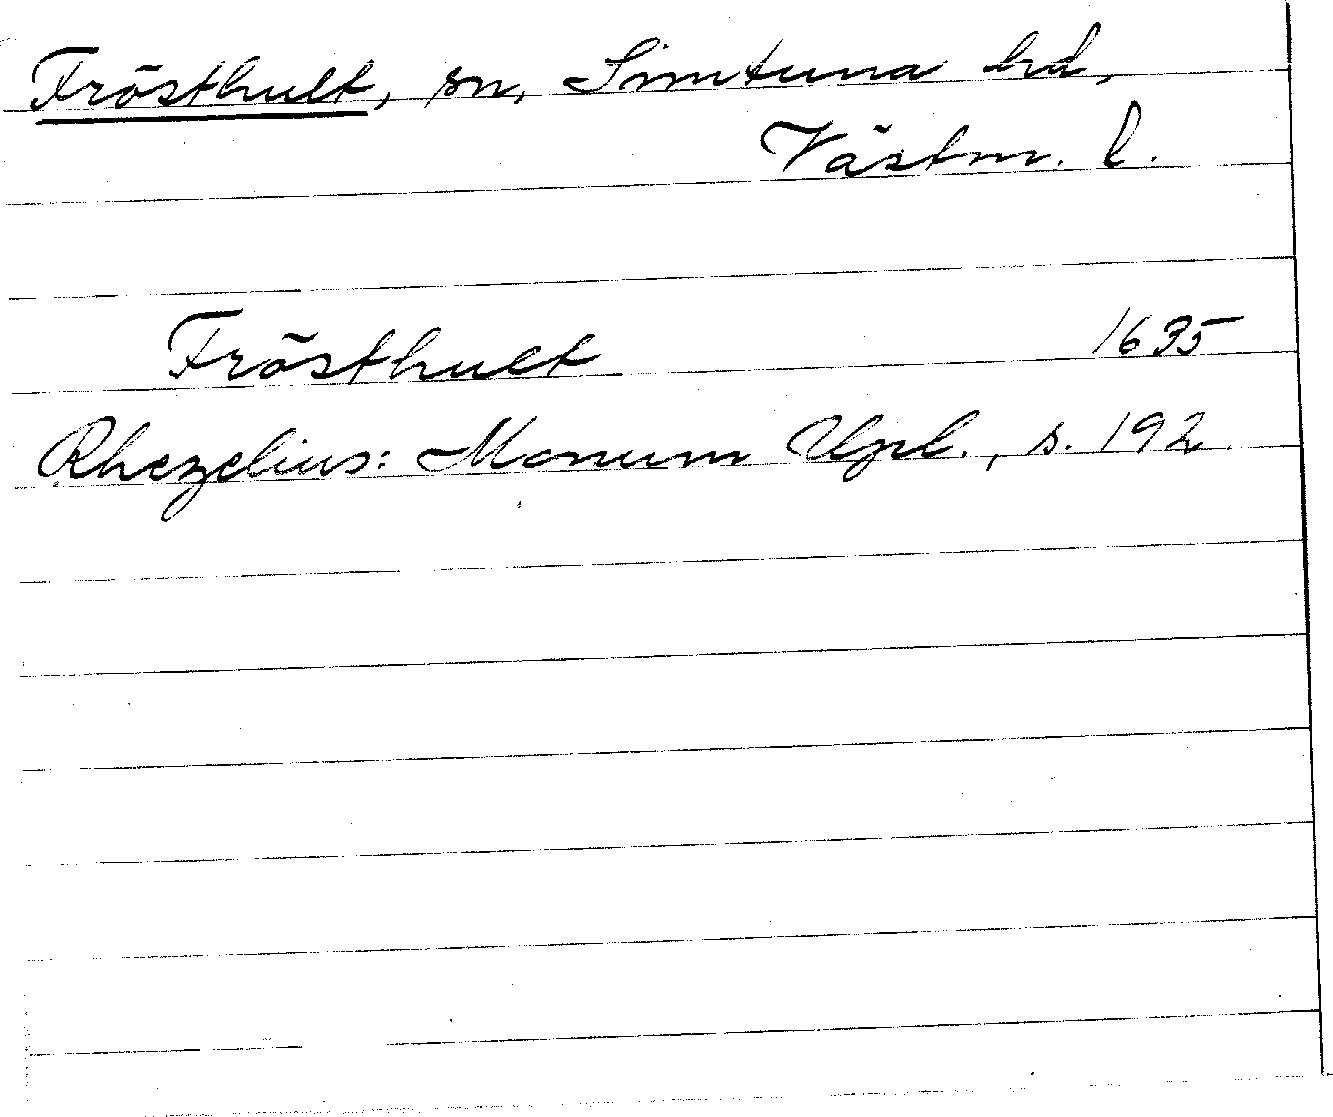 Frösthult, sn, Simtuna hd,
Västm. l.
Frösthult 1635
Rhezelius: Monum Upl., s. 192